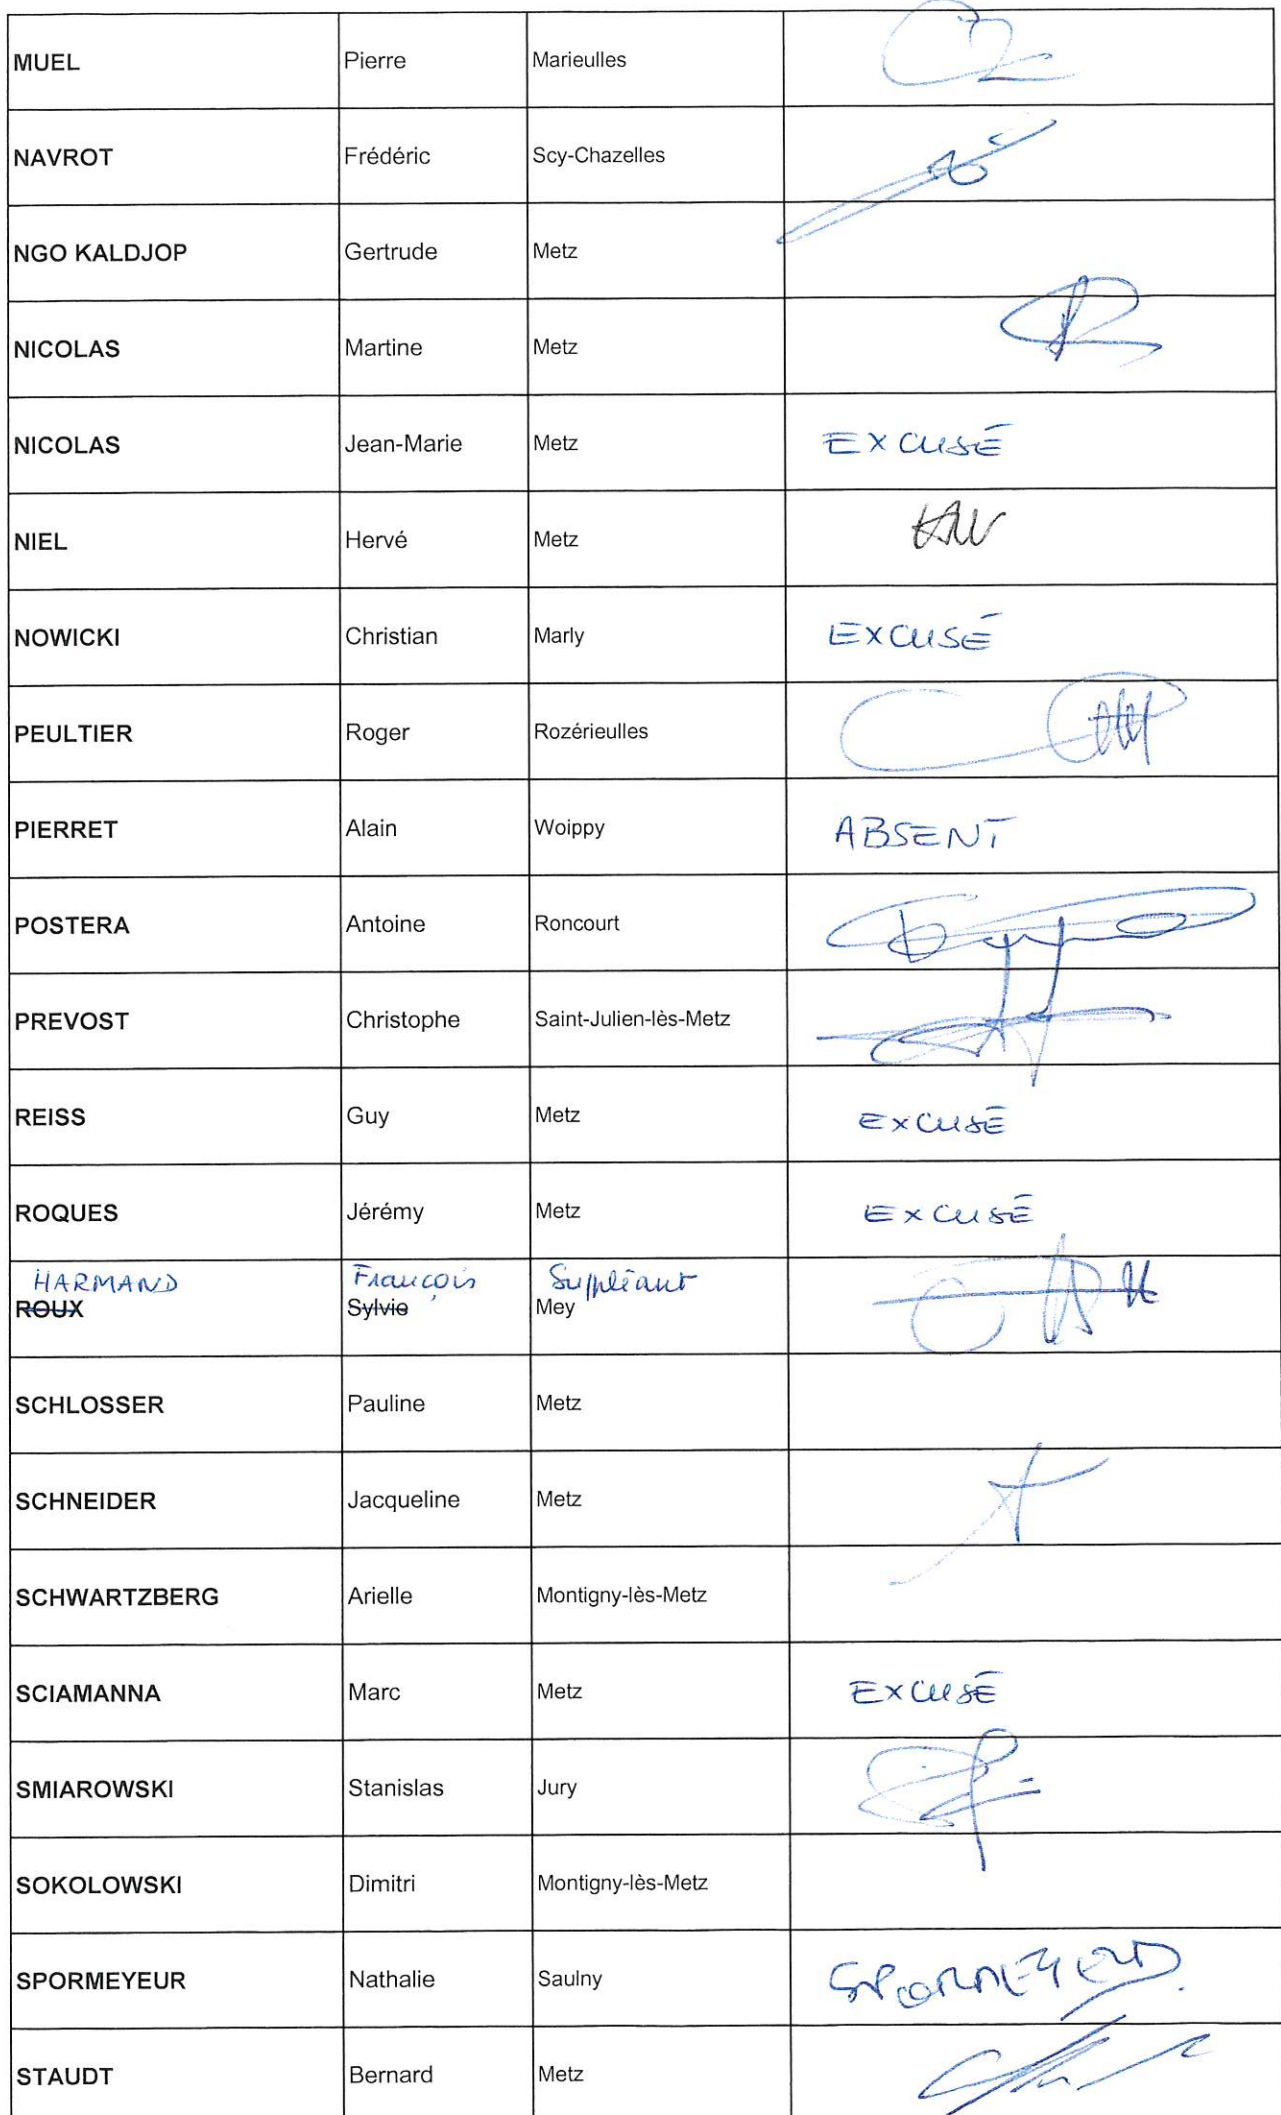 MUEL Pierre Marieulles
NAVROT Frédéric Scy-Chazelles
NGO KALDJOP Gertrude Metz
NICOLAS Martine Metz
NICOLAS Jean-Marie Metz EXCUSÉ
NIEL Hervé Metz
NOWICKI Christian Marly EXCUSÉ
PEULTIER Roger Rozérieulles
PIERRET Alain Woippy ABSENT
POSTERA Antoine Roncourt
PREVOST Christophe Saint-Julien-lès-Metz
REISS Guy Metz EXCUSÉ
ROQUES Jérémy Metz EXCUSÉ
HARMAND François Suppléant
ROUX Sylvie Mey
SCHLOSSER Pauline Metz
SCHNEIDER Jacqueline Metz
SCHWARTZBERG Arielle Montigny-lès-Metz
SCIAMANNA Marc Metz EXCUSÉ
SMIAROWSKI Stanislas Jury
SOKOLOWSKI Dimitri Montigny-lès-Metz
SPORMEYEUR Nathalie Saulny SPORMEYEUR
STAUDT Bernard Metz